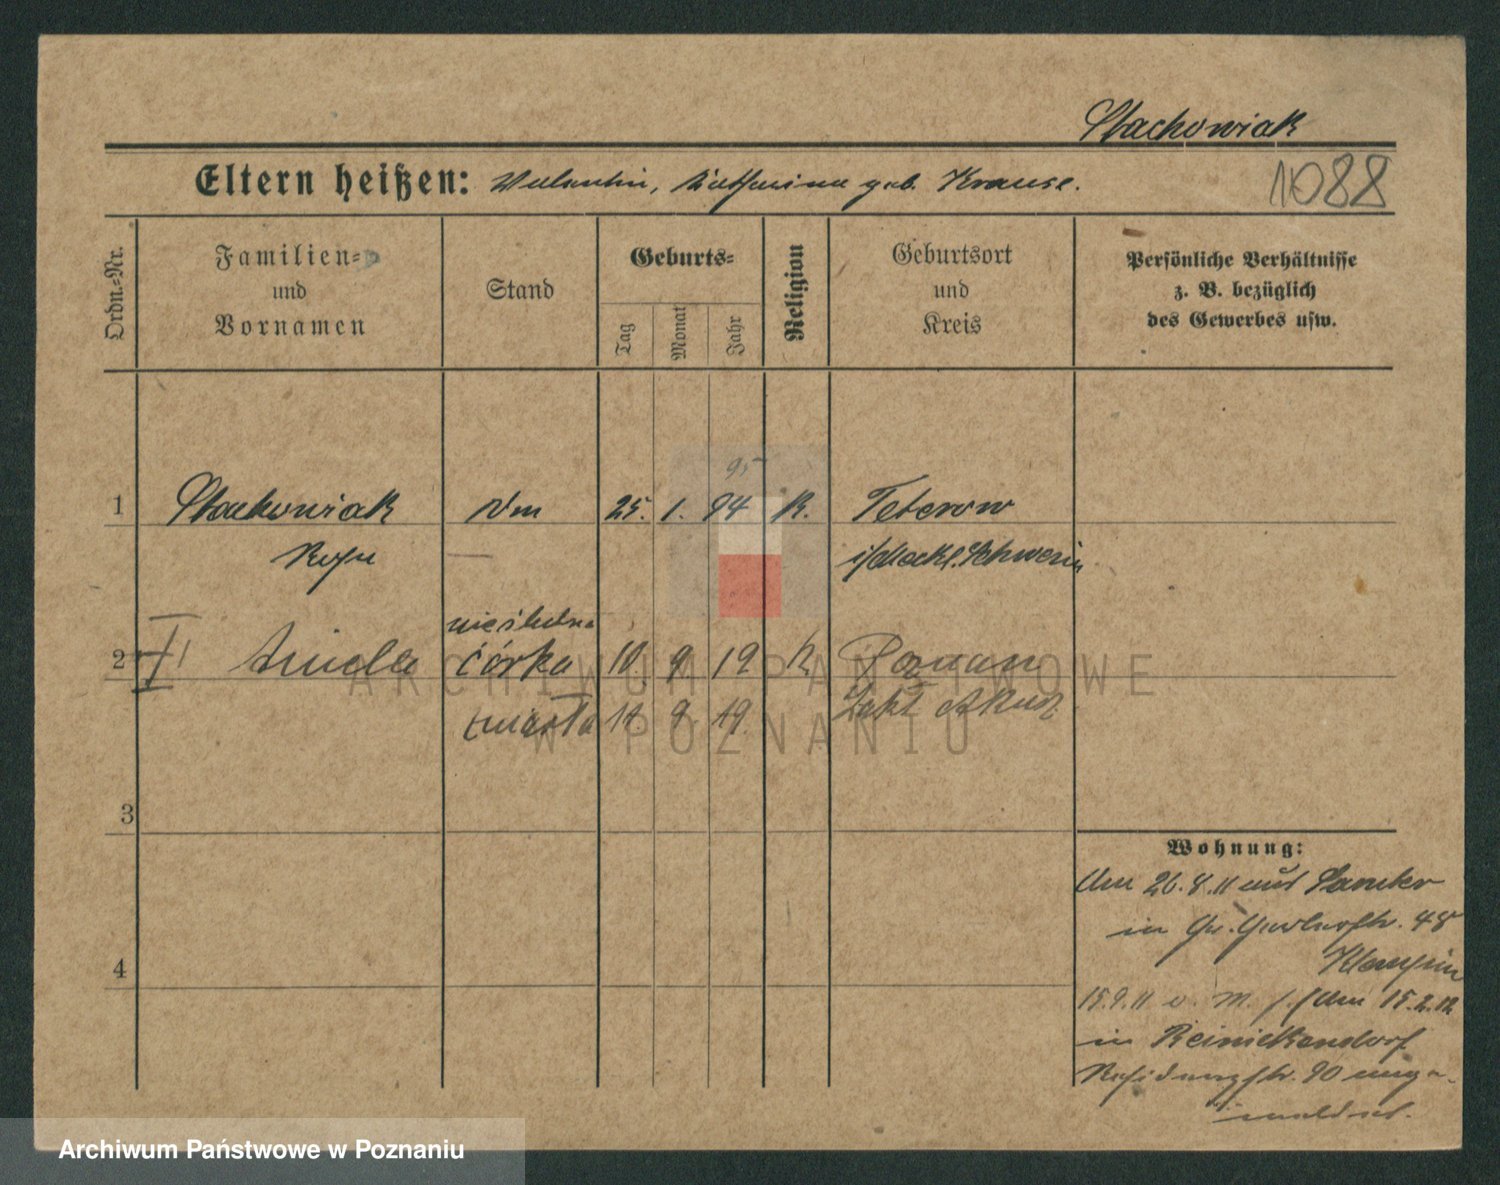 Stachowiak
Eltern heißen: Valentin, Katharina geb. Krause.
1088
Ordn.-Nr.
Familien-
und
Vornamen
Stand
Geburts-
Tag
Monat
Jahr
Religion
Geburtsort
und
Kreis
Persönliche Verhältnisse
z. B. bezüglich
des Gewerbes usw.
95
1 Stachowiak 25. 1. 94 K. Teterow
Rosa i/Meckl. Schwerin
nieślubna
2 II córka 10. 9 19 K Poznań
zmarła 11. 9 19.
3
4
Wohnung:
Am 26.8.11 aus Samter
in Gr. Gerberstr. 48
15.9.11 v. M. Am 15.2.12
in Reinickendorf
Residenzstr. 90 ange-
meldet.
ARCHIWUM PAŃSTWOWE
W POZNANIU
Archiwum Państwowe w Poznaniu